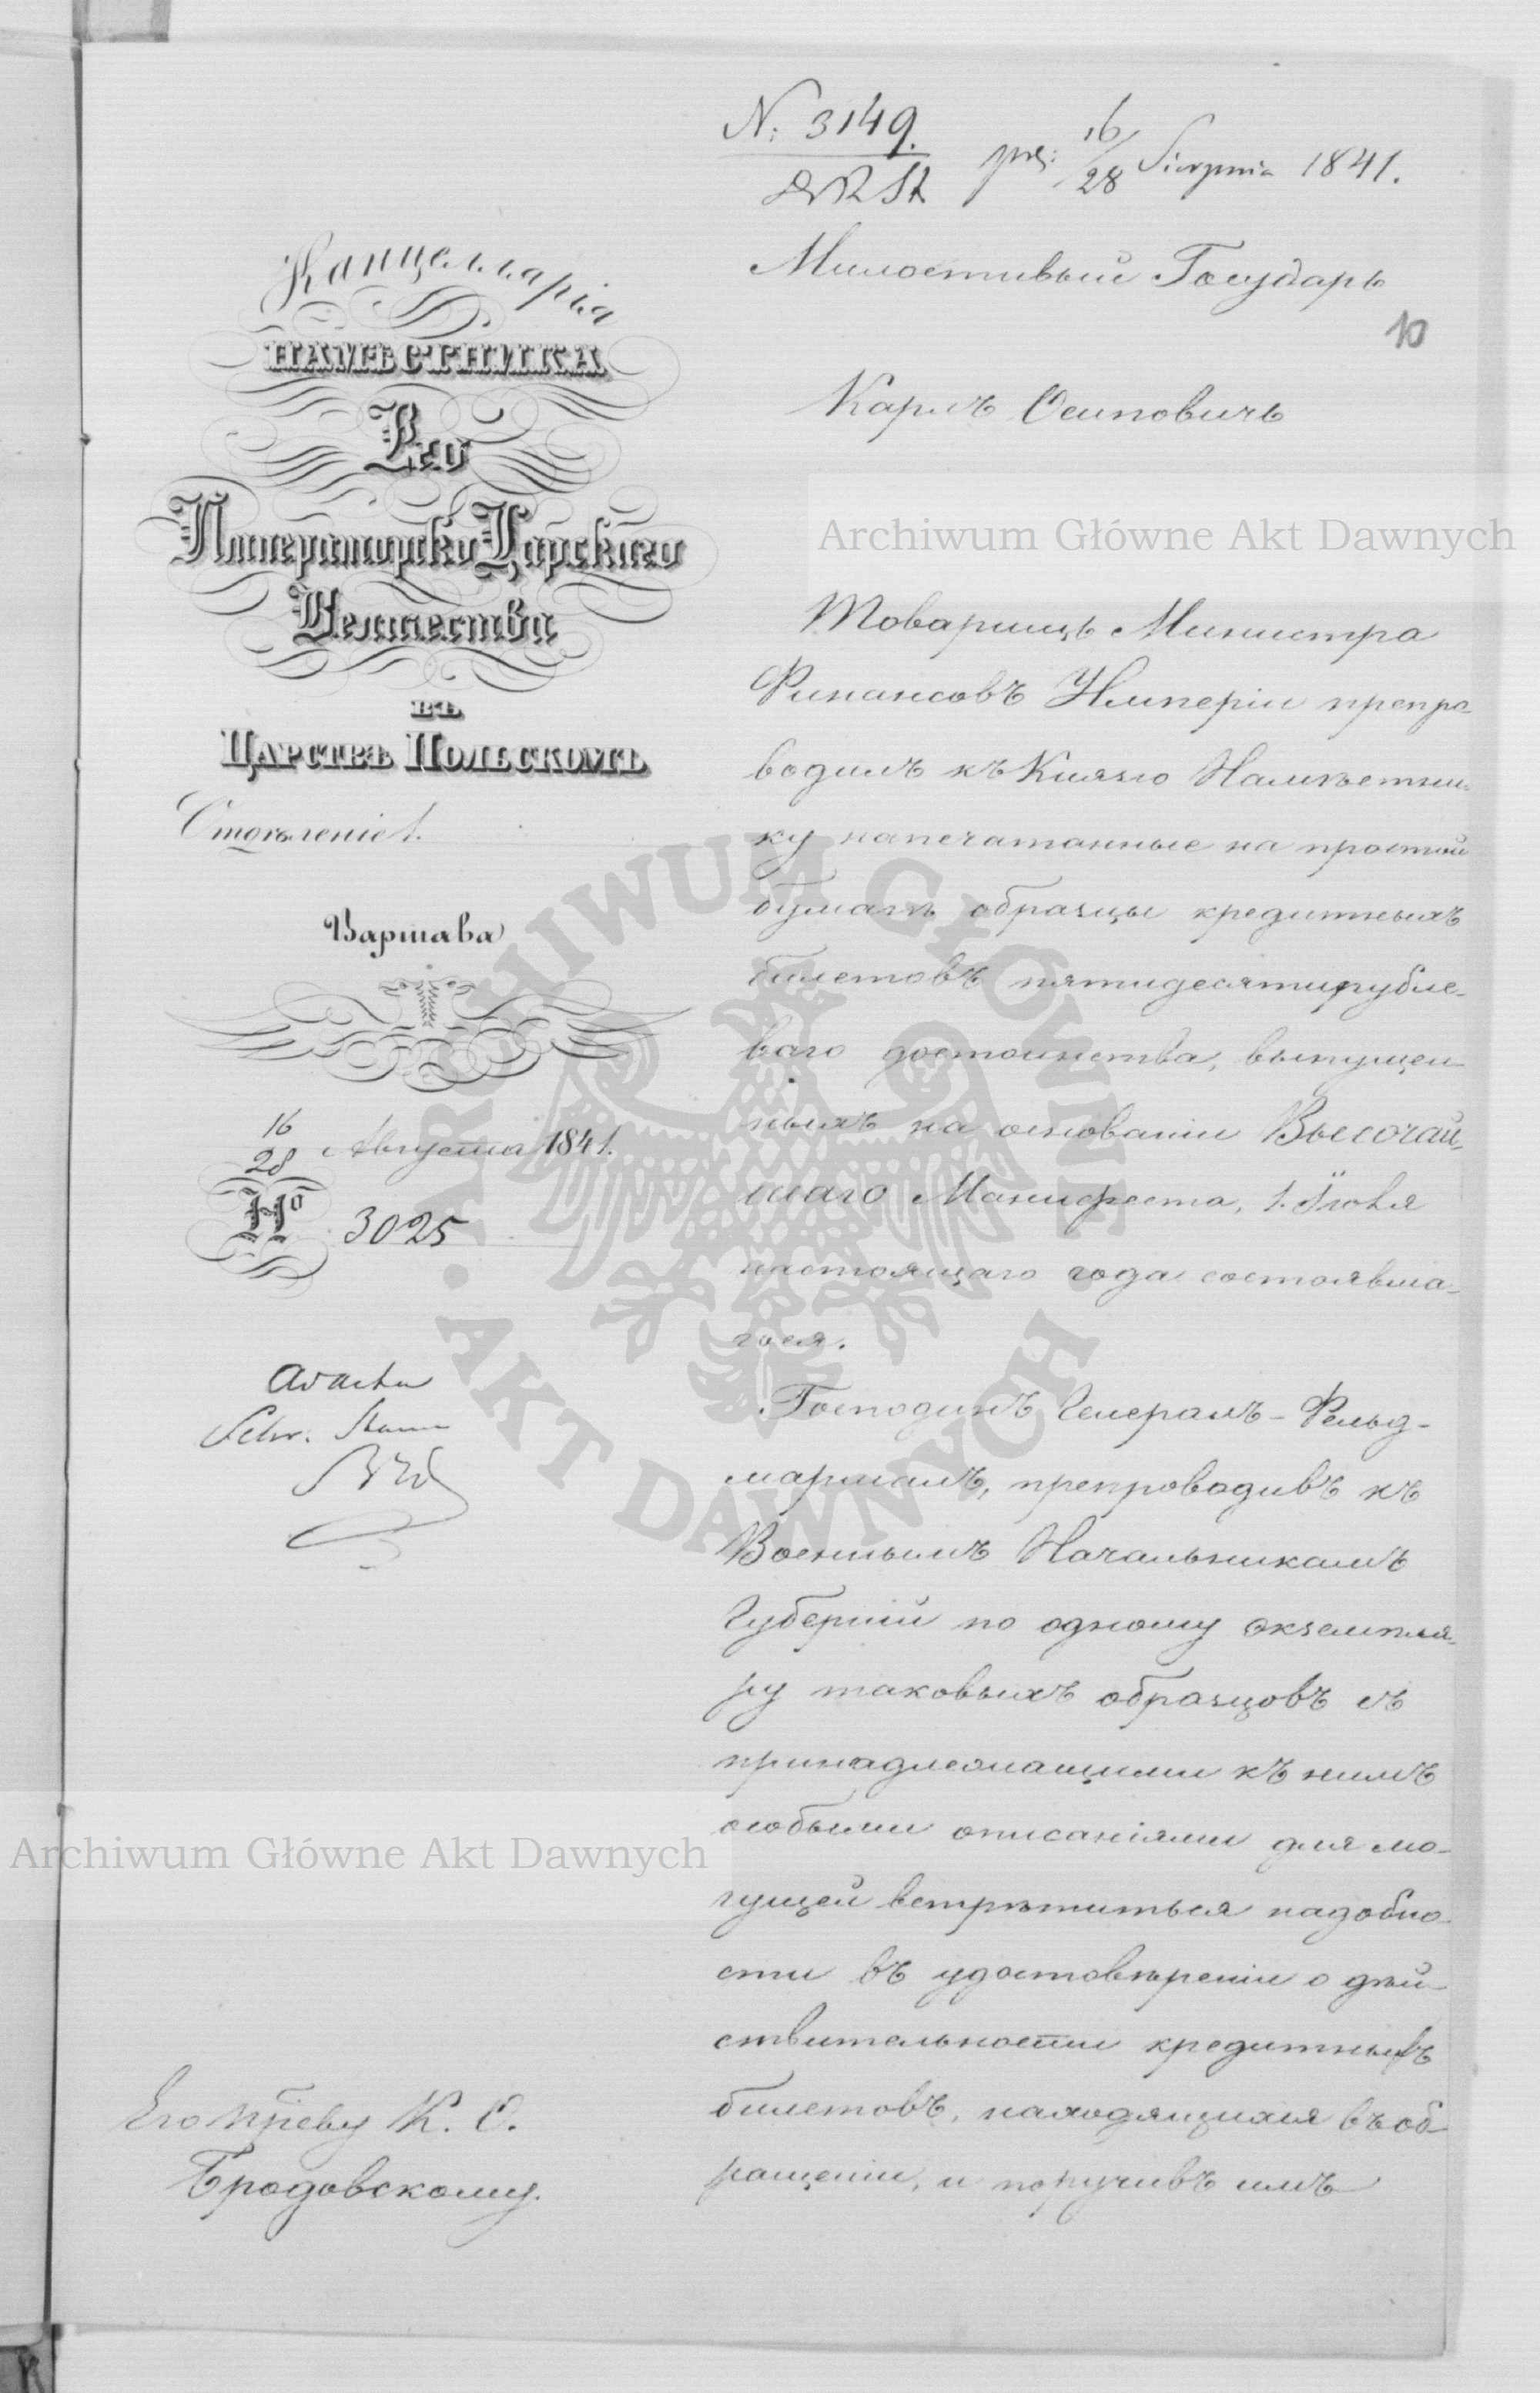 N: 3149.
pres: 16/28 Sierpnia 1841.
Канцеллярія
НАМѢСТНИКА
Его
Императорско Царскаго
Величества
въ
Царствѣ Польскомъ
Отдѣленіе 1.
Варшава
16
28 Августа 1841.
№ 3025
ad acta
Его Пр̃еву К. О.
Бродовскому.
Милостивый Государь
10
Карлъ Осиповичь
Товарищъ Министра
Финансовъ Имперіи препро-
водилъ къ Князю Намѣстни-
ку напечатанные на простой
бумагѣ образцы кредитныхъ
билетовъ пятидесятирубле-
ваго достоинства, выпущен-
ныхъ на основаніи Высочай-
шаго Манифеста, 1. Іюля
настоящаго года состоявша-
гося.
Господинъ Генералъ-Фельд-
маршалъ, препроводивъ къ
Военнымъ Начальникамъ
Губерній по одному экземпля-
ру таковыхъ образцовъ съ
принадлежащими къ нимъ
особыми описаніями для мо-
гущей встрѣтиться надобно-
сти въ удостовѣреніи о дѣй-
ствительности кредитныхъ
билетовъ, находящихся въ об-
ращеніи, и поручивъ имъ
Archiwum Główne Akt Dawnych
Archiwum Główne Akt Dawnych
ARCHIWUM GŁÓWNE
AKT DAWNYCH